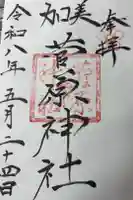 奉拝
加美
菅原神社
令和八年五月二十四日